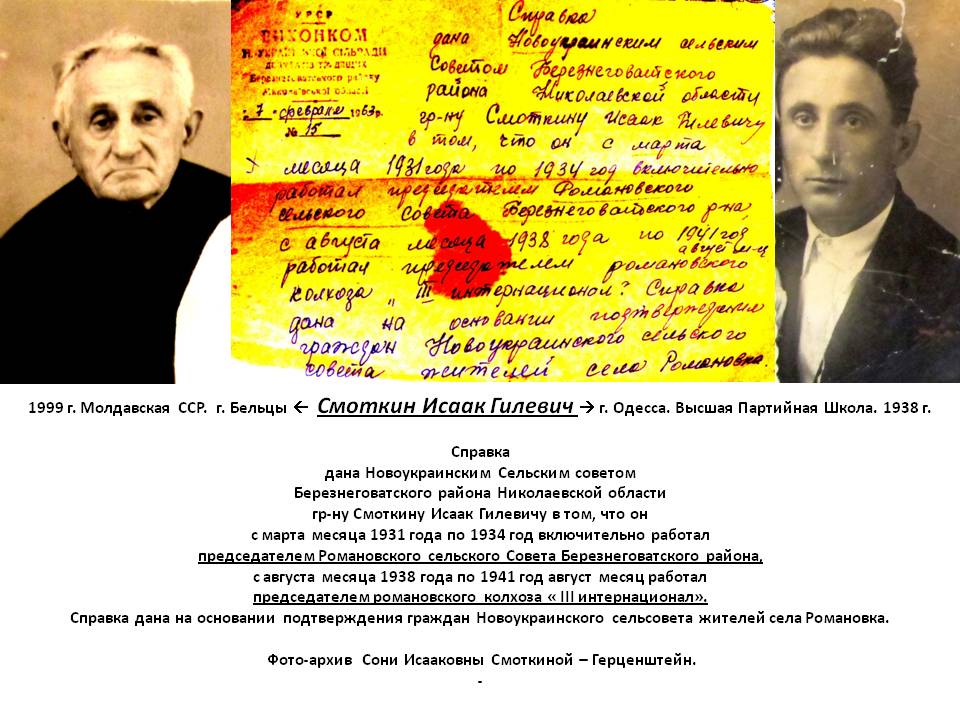 УРСР
ВИКОНКОМ
Н. УКРАЇНСЬКОЇ СІЛЬРАДИ
депутатів трудящих
Березнеговатського району
Миколаївської області
7 февраля 1963 р.
№ 15
Справка
дана Новоукраинским сельским
Советом Березнеговатского
района Николаевской области
гр-ну Смоткину Исаак Гилевичу
в том, что он с марта
месяца 1931 года по 1934 год включительно
работал председателем Романовского
сельского Совета Березнеговатского р-на,
с августа месяца 1938 года по 1941 год
август м-ц
работал председателем романовского
колхоза „III интернационал? Справка
дана на основании подтверждения
граждан Новоукраинского сельского
совета жителей села Романовка.
1999 г. Молдавская ССР. г. Бельцы ← Смоткин Исаак Гилевич → г. Одесса. Высшая Партийная Школа. 1938 г.
Справка
дана Новоукраинским Сельским советом
Березнеговатского района Николаевской области
гр-ну Смоткину Исаак Гилевичу в том, что он
с марта месяца 1931 года по 1934 год включительно работал
председателем Романовского сельского Совета Березнеговатского района,
с августа месяца 1938 года по 1941 год август месяц работал
председателем романовского колхоза « III интернационал».
Справка дана на основании подтверждения граждан Новоукраинского сельсовета жителей села Романовка.
Фото-архив Сони Исааковны Смоткиной – Герценштейн.
-